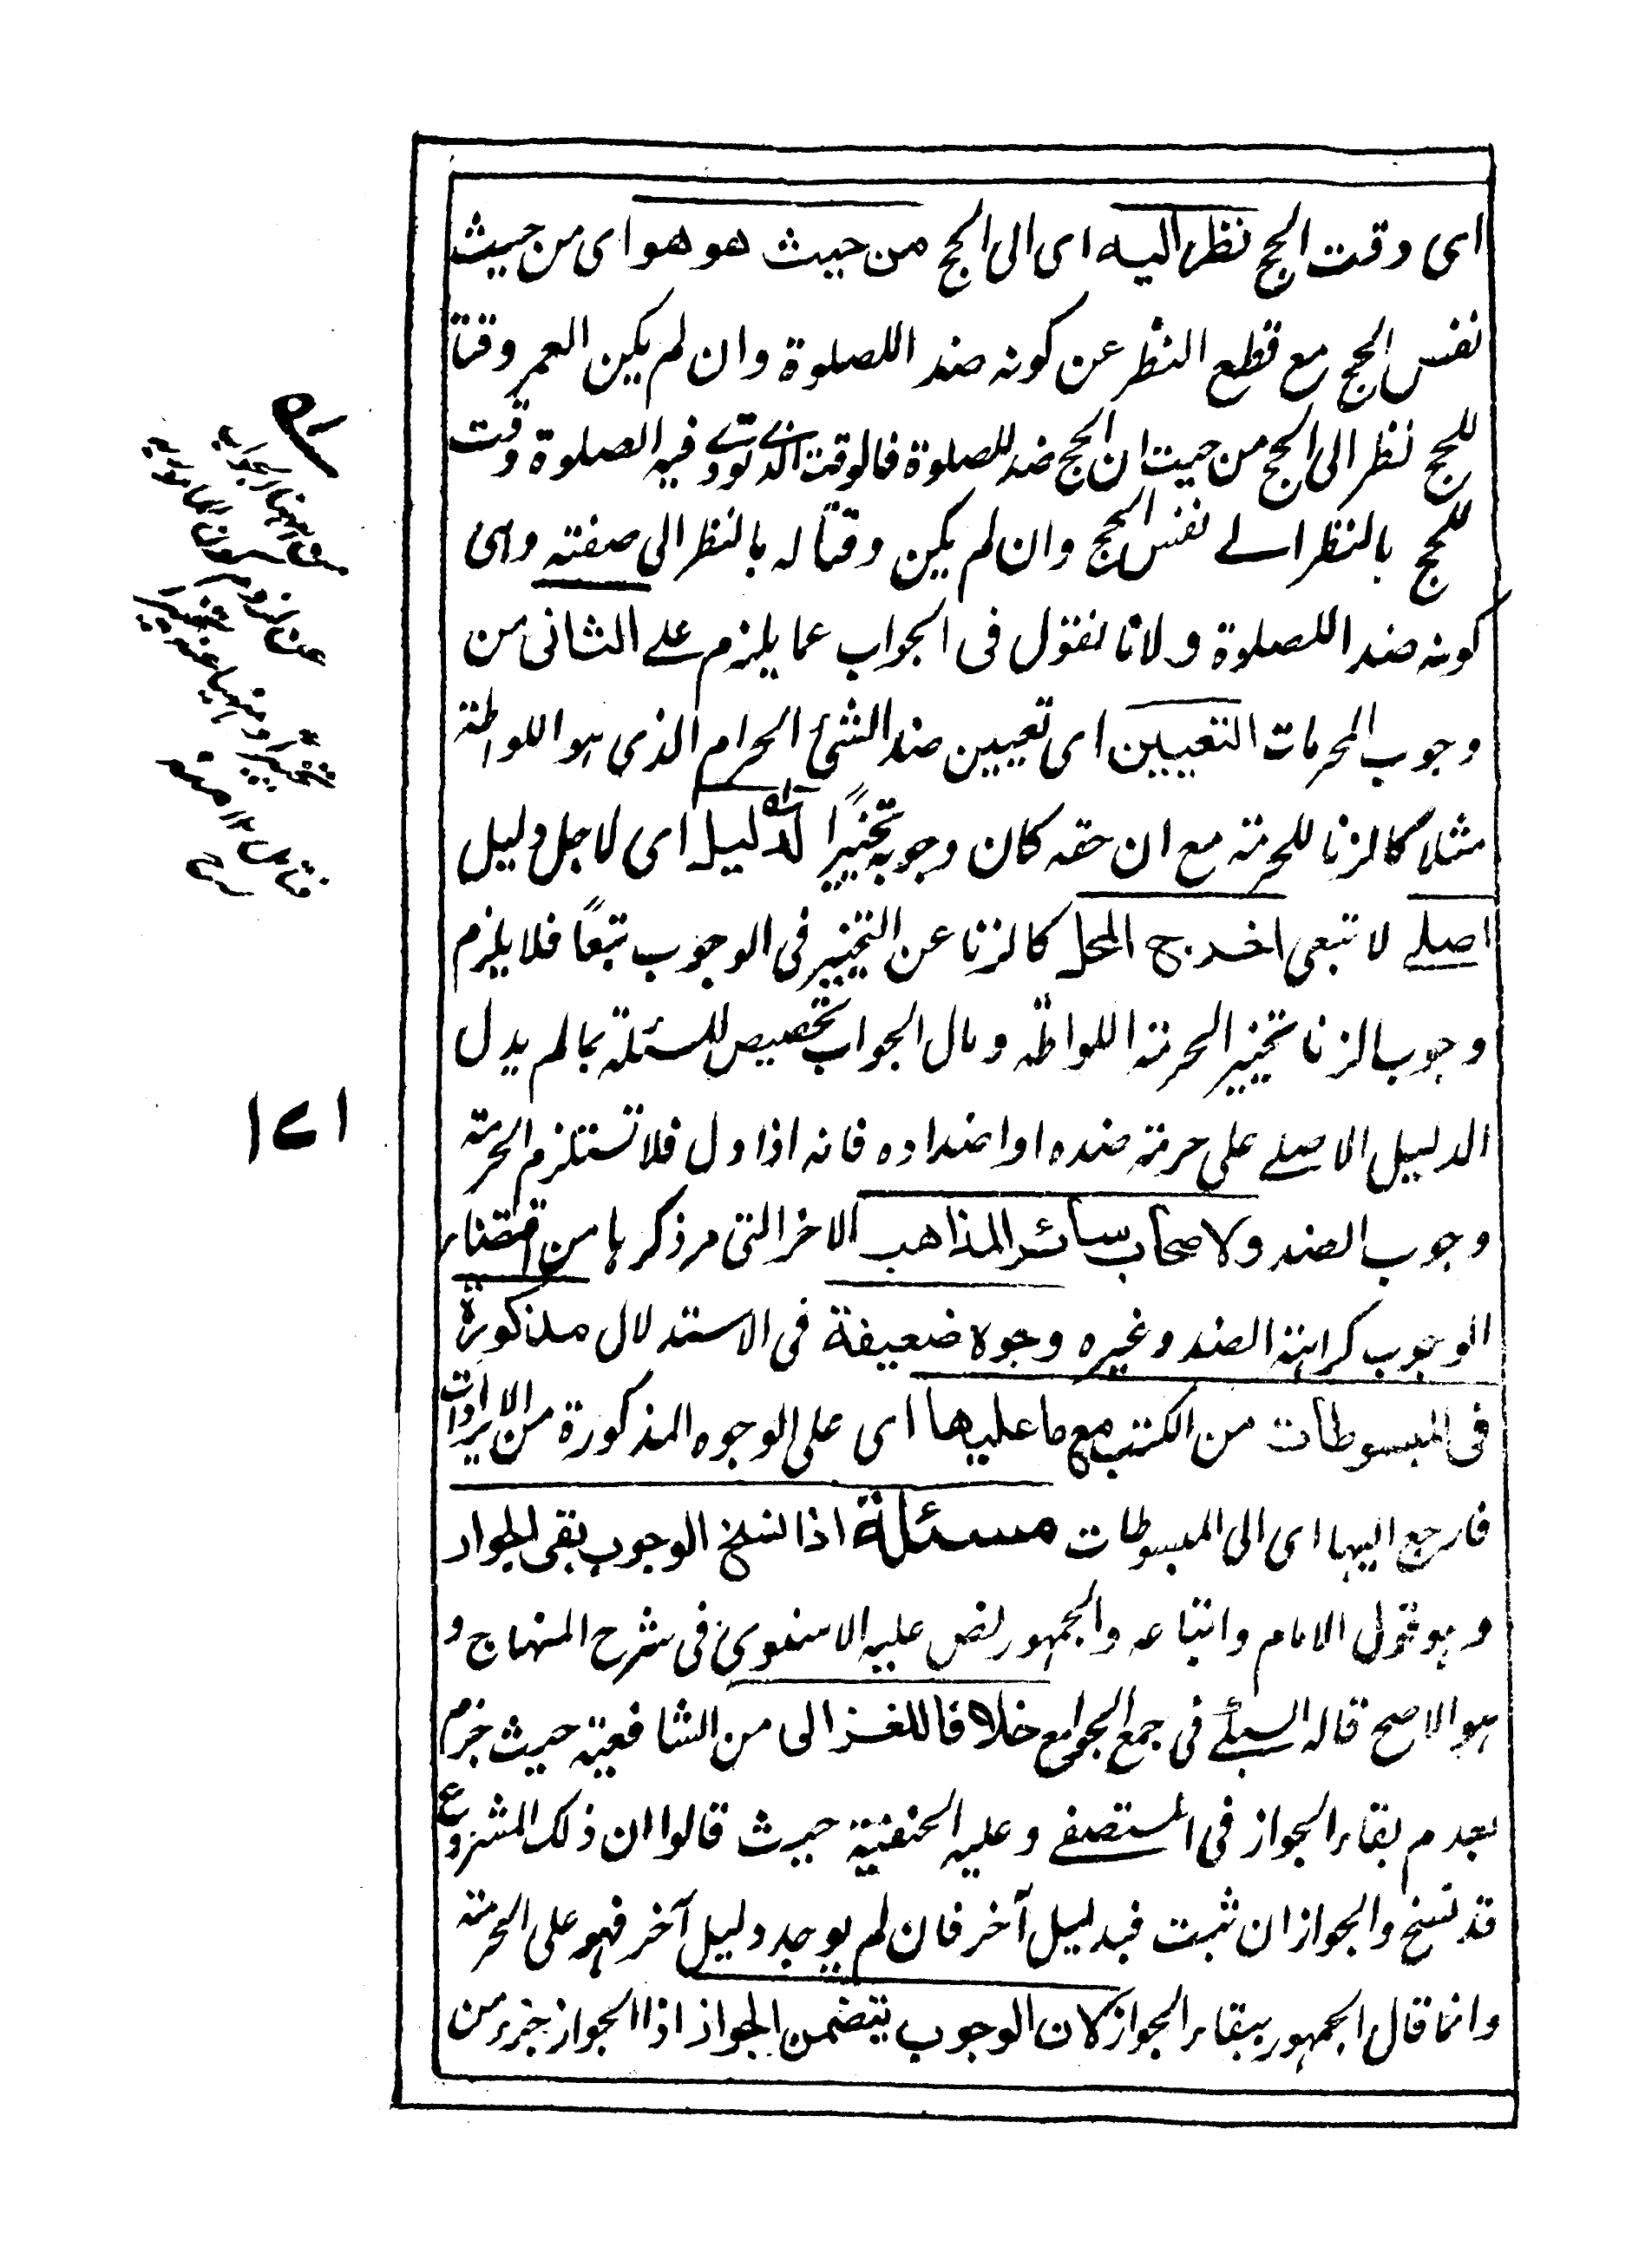 اى وقت الحج نظرا اليه اى الى الحج من حيث هو هو اى من حيث
نفس الحج مع قطع النظر عن كونه ضد اللصلوة وان لم يكن العمر وقتا
للحج نظر الى الحج من حيث ان الحج ضد للصلوة فالوقت الذى تودى فيه الصلوة وقت
للحج بالنظر الے نفس الحج وان لم يكن وقتا له بالنظر الى صفته وهى
كونه ضد اللصلوة ولانا نقول فى الجواب عما يلزم علے الثانى من
وجوب المحرمات التعيين اى تعيين ضد الشئ الحرام الذى هو اللواطة
مثلا كالزنا للحرمة مع ان حقه كان وجوبه تخييرًا لدليل اى لاجل دليل
اصلے لا تبعى اخرج المحل كالزنا عن التخيير فى الوجوب تبعًا فلا يلزم
وجوب الزنا تخييرا لحرمة اللواطة ومال الجواب تخصيص للمسئلة بما لم يدل
الدليل الاصلے على حرمة ضده او اضداده فانه اذا دل فلا تستلزم الحرمة
وجوب الضد ولاصحاب سائر المذاهب الاخر التى مر ذكرها من اقتضاء
الوجوب كراهة الضد وغيره وجوه ضعيفة فى الاستدلال مذكورة
فى المبسوطات من الكتب مع ما عليها اى على الوجوه المذكورة من الايرادات
فارجع اليها اى الى المبسوطات مسئلة اذا نسخ الوجوب بقى الجواز
وهو قول الامام واتباعه والجمهور نص عليه الاسنوى فى شرح المنهاج و
هو الاصح قاله السبكے فى جمع الجوامع خلافا للغزالى من الشافعية حيث جزم
بعدم بقاء الجواز فى المستصفے وعليه الحنفية حيث قالوا ان ذلك المشروع
قد نسخ والجواز ان ثبت فبدليل آخر فان لم يوجد دليل آخر فهو على الحرمة
وانما قال الجمهور ببقاء الجواز لان الوجوب يتضمن الجواز اذ الجواز جزء من
١٧١